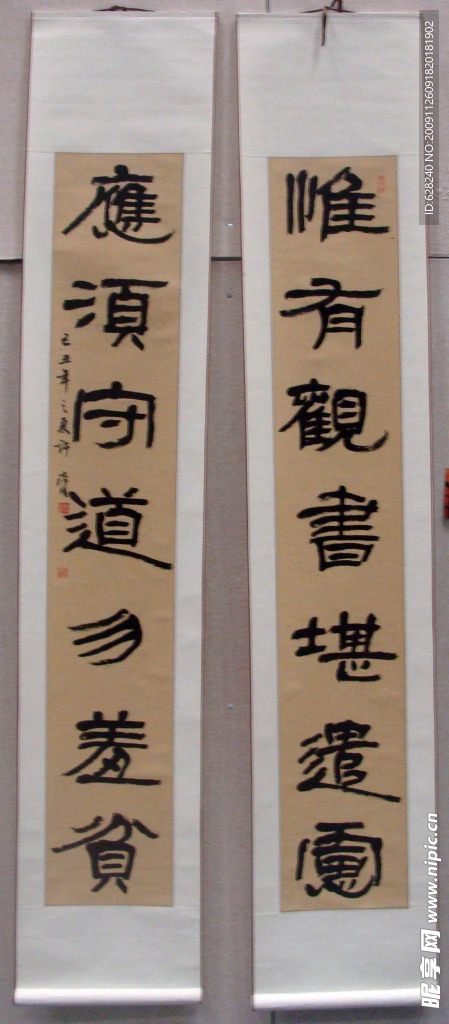 惟有觀書堪遣慮
應須守道勿羞貧
己丑年之夏許
ID:628240 NO:20091126091820181902
昵享网 www.nipic.cn